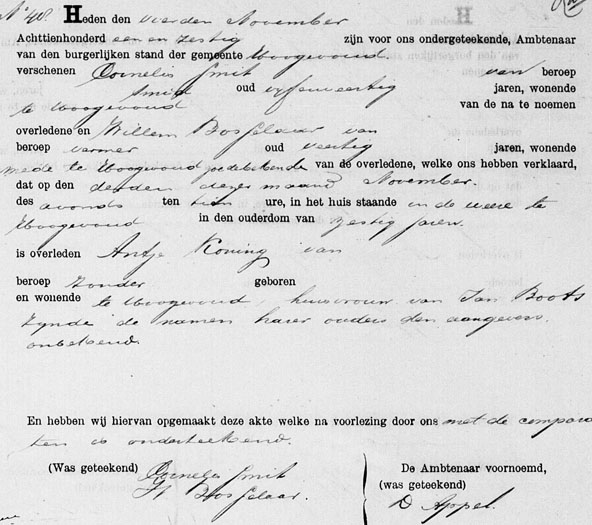 No 48. Heden den vierden November
Achttienhonderd een en zestig zijn voor ons ondergeteekende, Ambtenaar
van den burgerlijken stand der gemeente Hoogwoud
verschenen Cornelis Smit van beroep
smid oud vyfenveertig jaren, wonende
te Hoogwoud van de na te noemen
overledene en Willem Bosselaar van
beroep varmer oud veertig jaren, wonende
mede te Hoogwoud goede bekende van de overledene, welke ons hebben verklaard,
dat op den derden dezer maand November.
des avonds ten tien ure, in het huis staande in de weere te
Hoogwoud in den ouderdom van zestig jaren.
is overleden Antje Koning van
beroep zonder geboren
en wonende te Hoogwoud, huisvrouw van Jan Boots
zynde de namen harer ouders den aangevers
onbekend.
En hebben wij hiervan opgemaakt deze akte welke na voorlezing door ons met de compara
ten is onderteekend.
(Was geteekend) Cornelis Smit
W Bosselaar.
De Ambtenaar voornoemd,
(was geteekend)
D Appel.